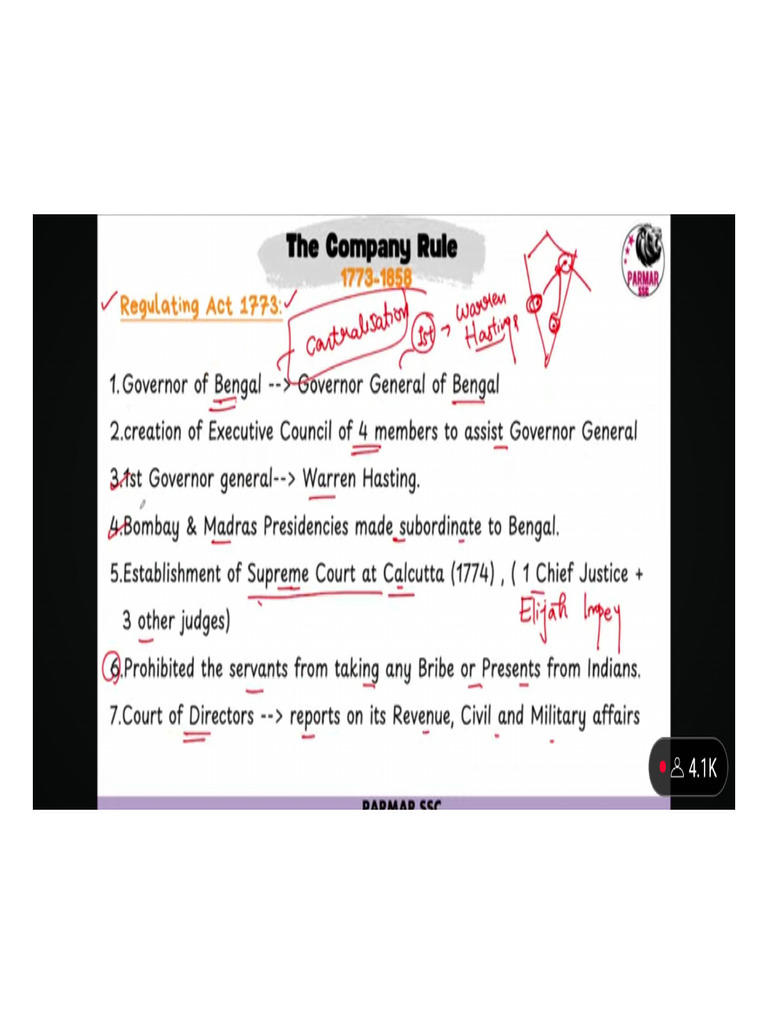 The Company Rule
1773-1858
PARMAR
SSC
Regulating Act 1773:
Centralisation
1st → Warren
Hastings
1.Governor of Bengal --> Governor General of Bengal
2.creation of Executive Council of 4 members to assist Governor General
3.1st Governor general--> Warren Hasting.
4.Bombay & Madras Presidencies made subordinate to Bengal.
5.Establishment of Supreme Court at Calcutta (1774) , ( 1 Chief Justice +
3 other judges)
Elijah Impey
6.Prohibited the servants from taking any Bribe or Presents from Indians.
7.Court of Directors --> reports on its Revenue, Civil and Military affairs
4.1K
PARMAR SSC